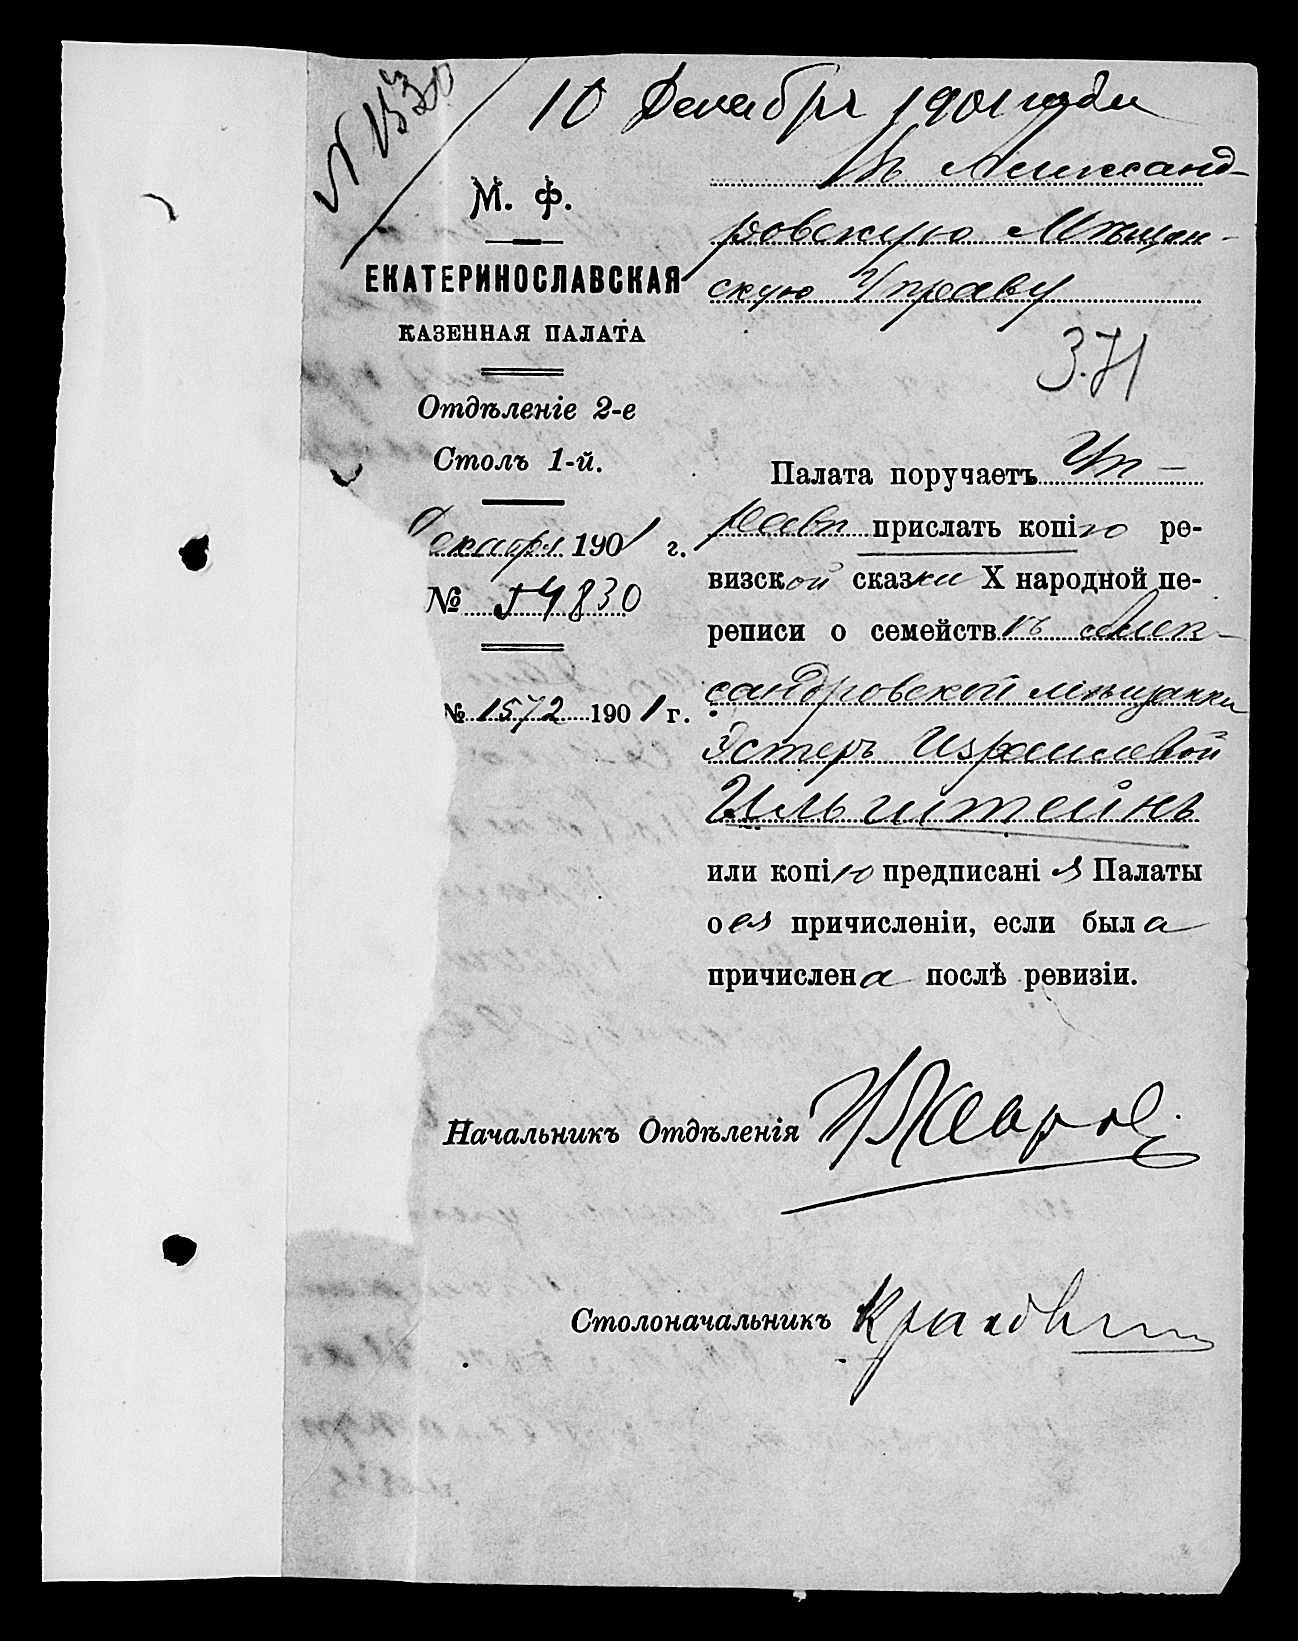 № 1530
10 Декабря 1901 года
Въ Александ-
ровскую Мѣщан-
скую Управу
М. Ф.
ЕКАТЕРИНОСЛАВСКАЯ
КАЗЕННАЯ ПАЛАТА
Отдѣленіе 2-е
Столъ 1-й.
Декабря 1901 г.
№ 54830
№ 1572 1901 г.
3.71
Палата поручаетъ Уп-
равѣ прислать копію ре-
визской сказки X народной пе-
реписи о семействѣ Алек-
сандровской мѣщанки
Эстеръ Израилевой
Ильштейнъ
или копію предписанія Палаты
о ея причисленіи, если была
причислена послѣ ревизіи.
Начальникъ Отдѣленія
Столоначальникъ